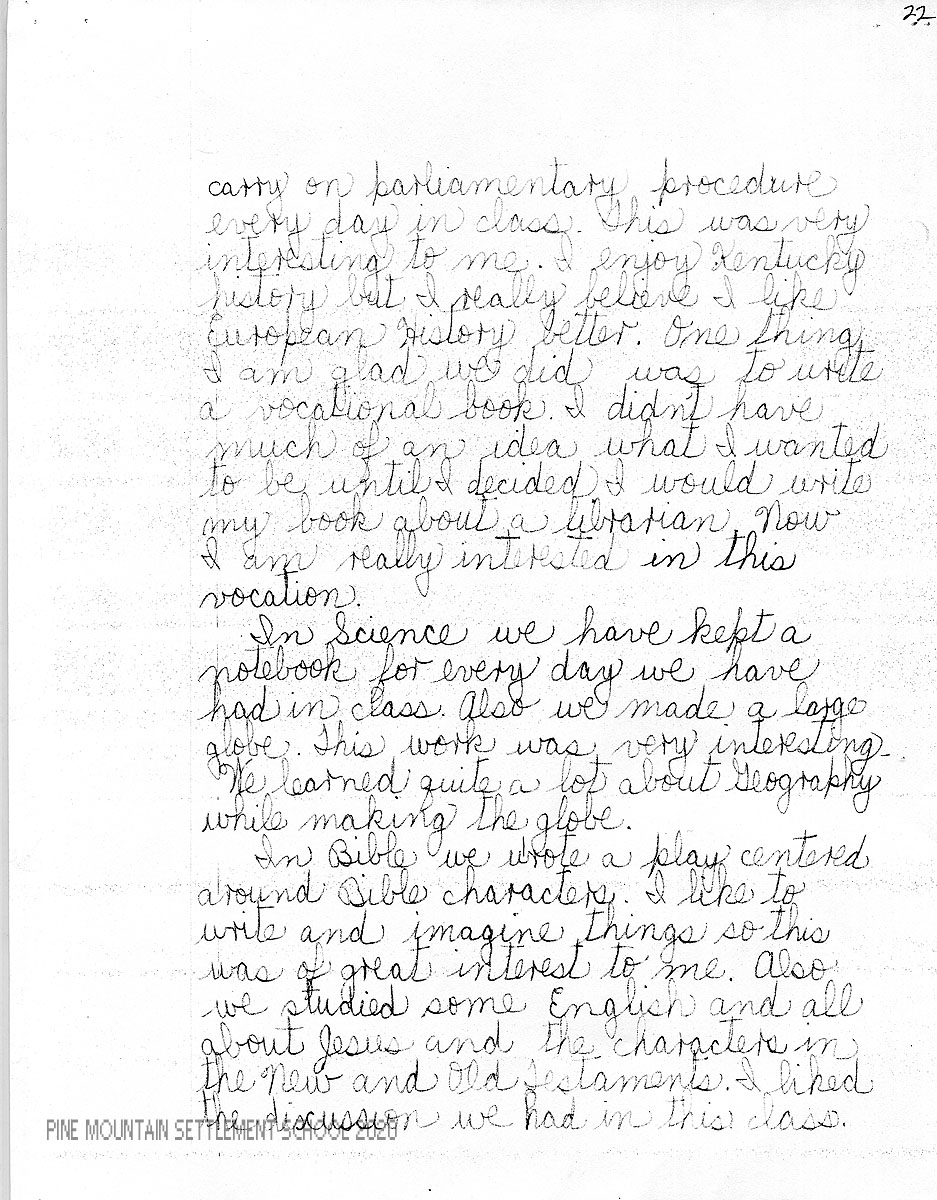 22
carry on parliamentary procedure
every day in class. This was very
interesting to me. I enjoy Kentucky
history but I really believe I like
European History better. One thing
I am glad we did was to write
a vocational book. I didn't have
much of an idea what I wanted
to be until I decided I would write
my book about a librarian. Now
I am really interested in this
vocation.
In Science we have kept a
notebook for every day we have
had in class. Also we made a large
globe. This work was very interesting.
We learned quite a lot about Geography
while making the globe.
In Bible we wrote a play centered
around Bible characters. I like to
write and imagine things so this
was of great interest to me. Also
we studied some English and all
about Jesus and the characters in
the New and Old Testaments. I liked
the discussion we had in this class.
PINE MOUNTAIN SETTLEMENT SCHOOL 2020